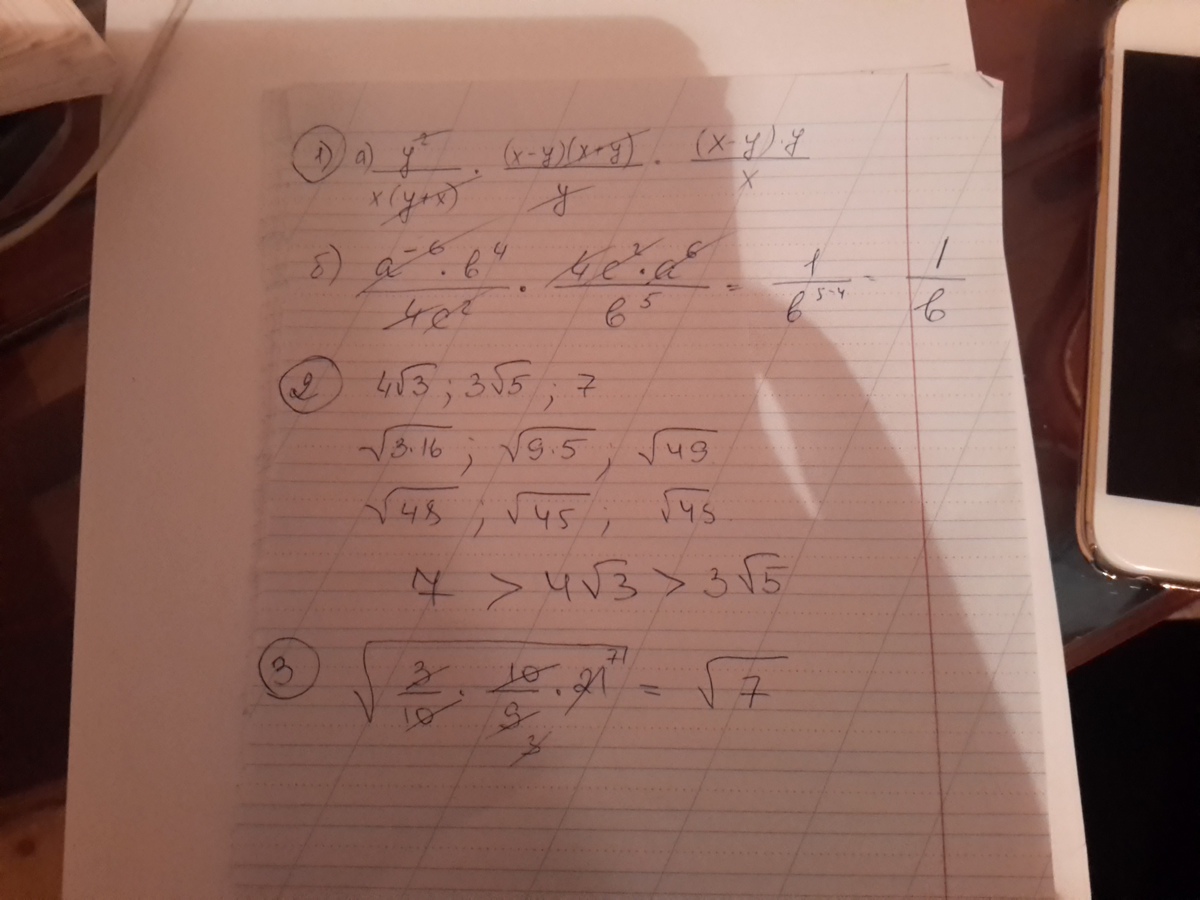 1) а) y²/x(y+x) · (x-y)(x+y)/y · (x-y)·y/x
б) a⁻⁶·b⁴/4c² · 4c²·a⁶/b⁵ = 1/b⁵⁻⁴ = 1/b
2 4√3 ; 3√5 ; 7
√3·16 ; √9·5 ; √49
√48 ; √45 ; √49
7 > 4√3 > 3√5
3 √3/10 · 10/9 3 · 21 7 = √7